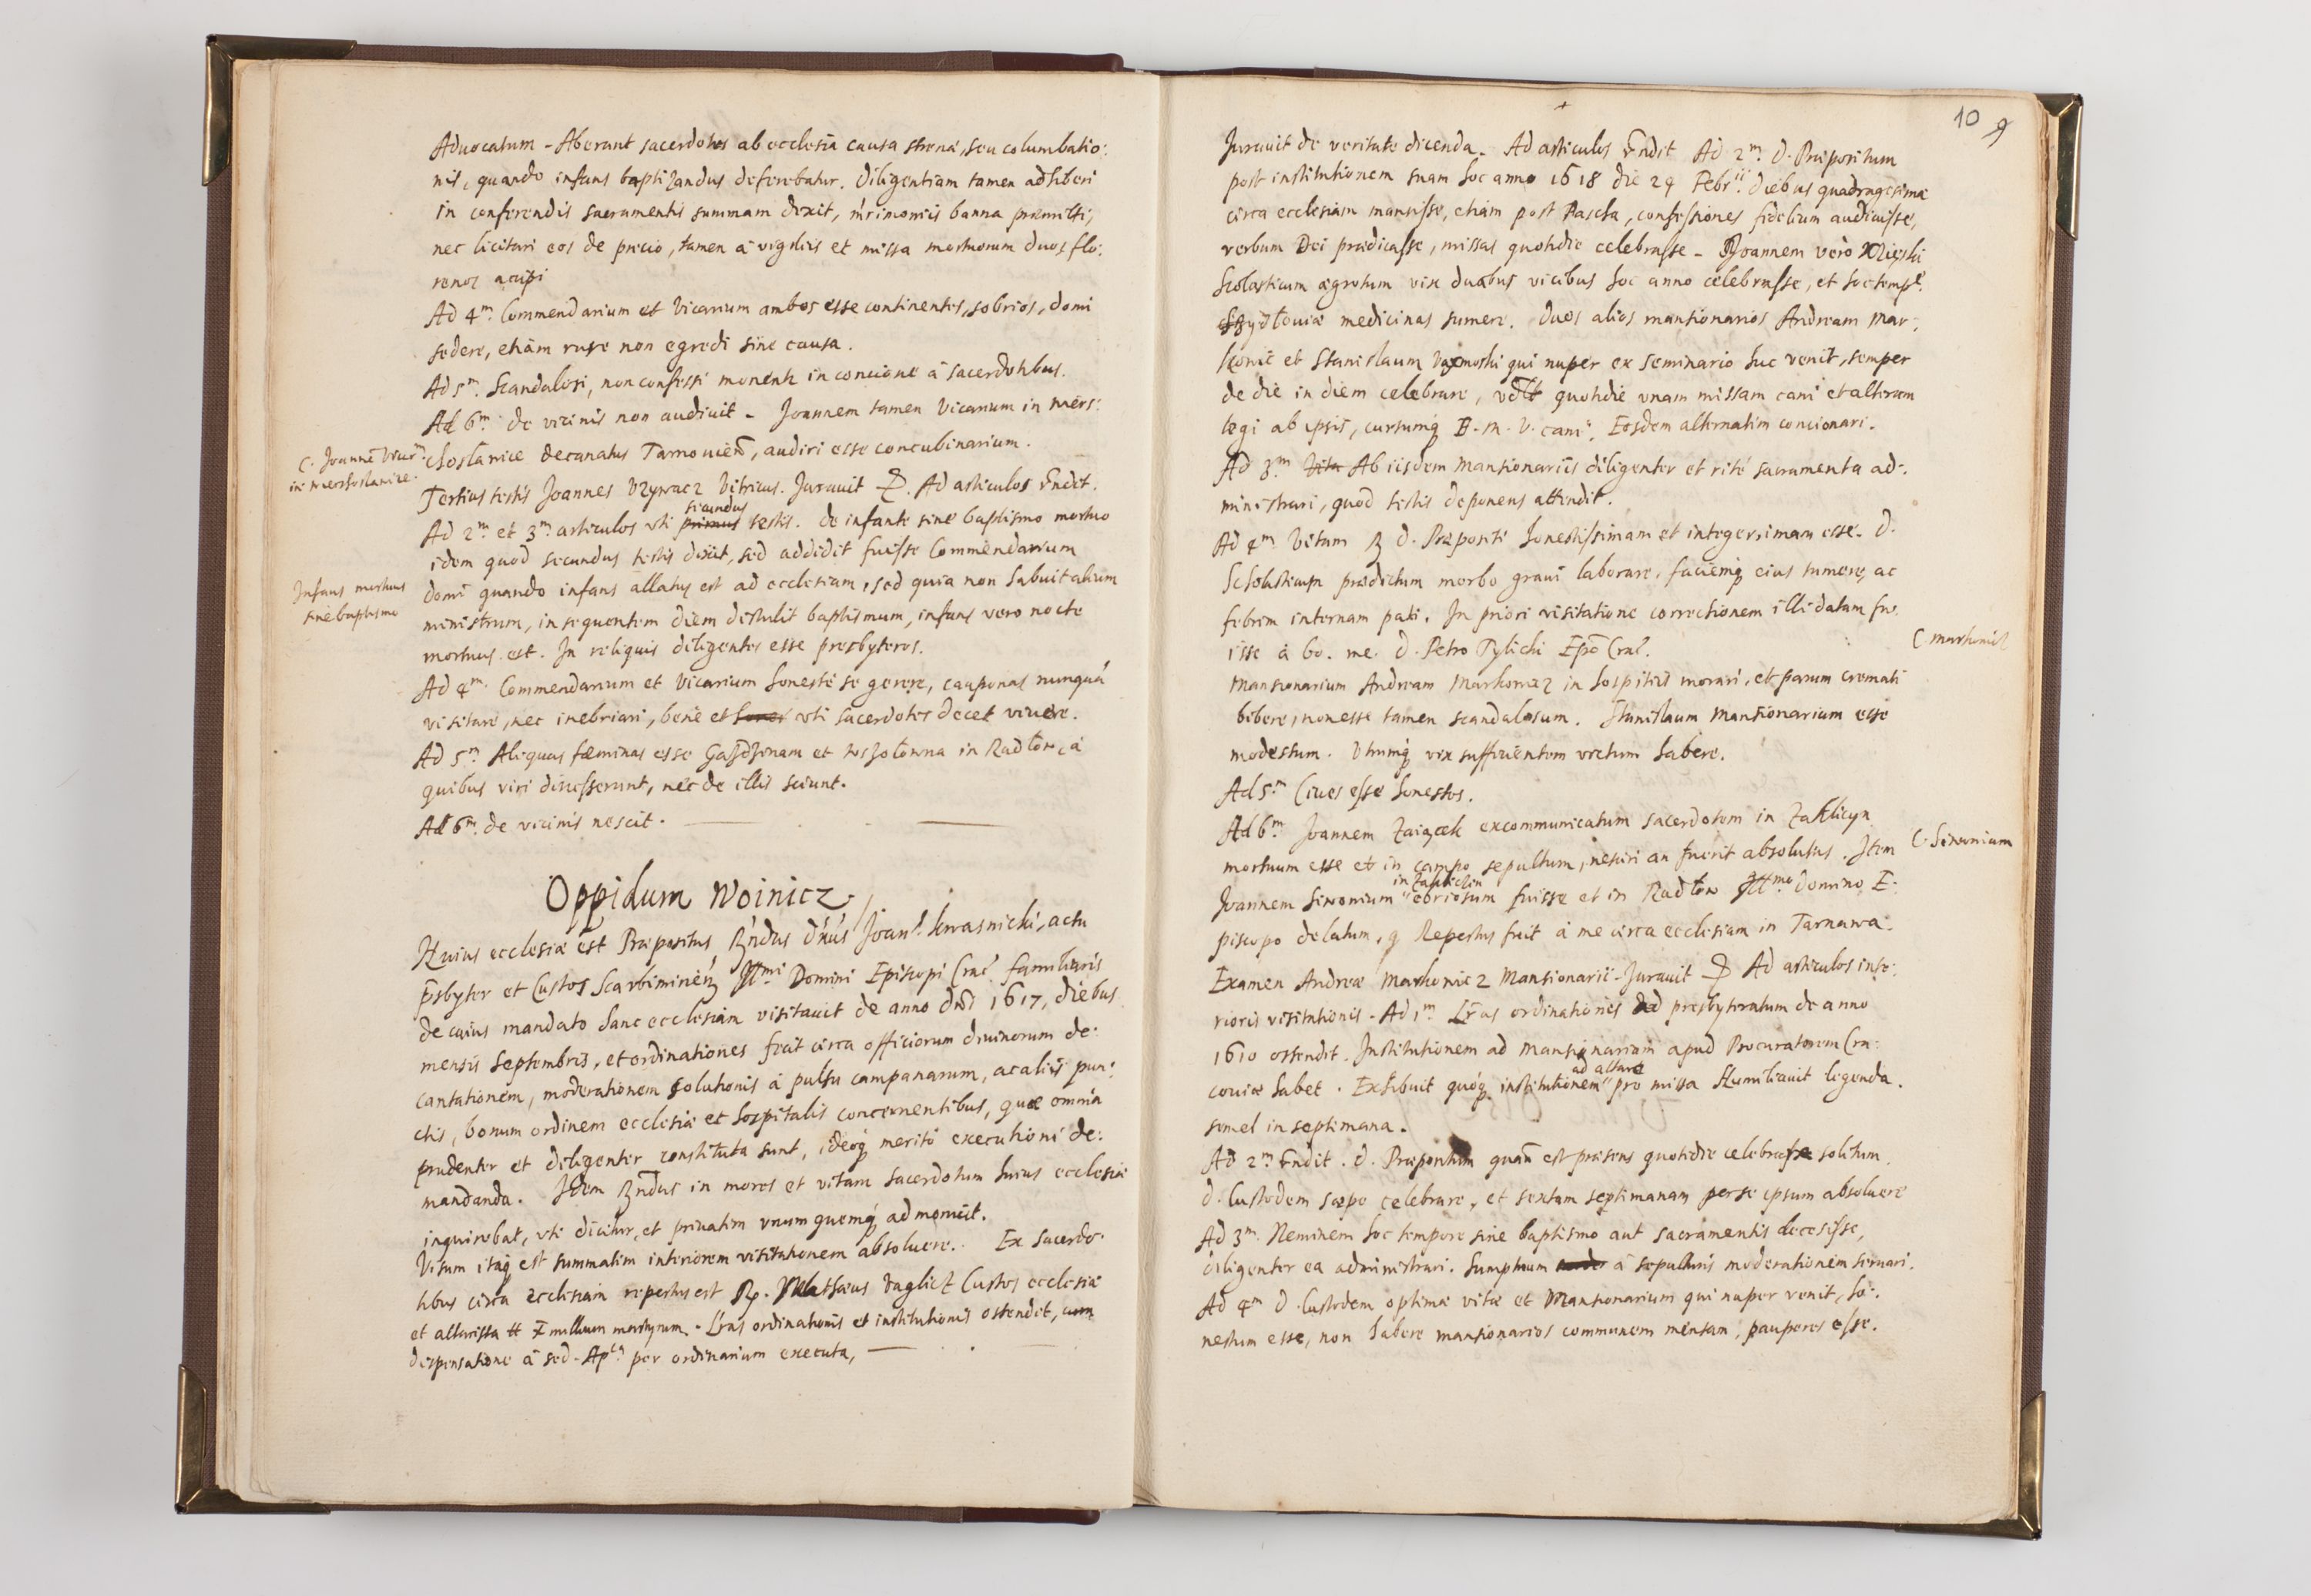 Aduocatum - Aberant sacerdotes ab ecclesia causa strenæ, seu columbatio:
nis, quando infans baptizandus deferebatur. Diligentiam tamen adhiberi
in conferendis sacramentis summam dixit, mrimoniis banna præmitti,
nec licitari eos de precio, tamen à vigiliis et missa mortuorum duos flo:
renos accipi
Ad 4m. Commendarium et Vicarium ambos esse continentes, sobrios, domi
sedere, etiam rure non egredi sine causa.
Ad 5m. Scandalosi, non confessi monentr in concione à sacerdotibus.
Ad 6m. de vicinis non audiuit - Joannem tamen Vicarium in Miers:
C. Joannē Vicar
in Miershoslauice.
choslawice Decanatus Tarnouien, audiri esse concubinarium.
Tertius testis Joannes Vzywacz Vitricus. Jurauit. Ad articulos rndit.
Ad 2m et 3m articulos vti primus secundus testis. De infante sine baptismo mortuo
idem quod secundus testis dixit, sed addidit fuisse Commendarium
Infans mortuus
sine baptismo
domi quando infans allatus est ad ecclesiam, sed quia non habuit alium
ministrum, in sequentem diem distulit baptismum, infans vero nocte
mortuus est. In reliquis diligentes esse presbyteros.
Ad 4m. Commendarium et Vicarium honeste se gerere, cauponas nunquā
visitare, nec inebriari, bene et vti sacerdotes decet viuere.
Ad 5m Aliquas fæminas esse et in Radłow, à
quibus viri discesserunt, nec de illis sciunt.
Ad 6m. de vicinis nescit.
Oppidum Woinicz.
Huius ecclesiæ est Præpositus, Rndus dnus Joans. kwasnicki, actu
Psbyter et Custos Scarbimirien Illmi Domini Episcopi Crac. familiaris
de cuius mandato hanc ecclesiam visitauit de anno dni 1617, diebus
mensis Septembris, et ordinationes fecit circa officiorum diuinorum de:
cantationem, moderationem solutionis à pulsu campanarum, ac aliis pun:
ctis, bonum ordinem ecclesiæ et hospitalis concernentibus, quæ omnia
prudenter et diligenter constituta sunt, ideoq merito executioni de:
mandanda. Idem Rndus in mores et vitam sacerdotum huius ecclesiæ
inquirebat, vti dicitur, et priuatim vnumquemq admonuit.
Visum itaq est summatim interiorem visitationem absoluere. Ex Sacerdo:
tibus circa ecclesiam repertus est R. Mathæus Custos ecclesiæ
et altarista X millium martyrum. Lras ordinationis et institutionis ostendit, cum
dispensatione à Sed. Aplca per ordinarium executa,
10 9
Jurauit de veritate dicenda. Ad articulos rndit Ad 2m. D. Præpositum
post institutionem suam hoc anno 1618 die 24 Febrii. diebus quadragesimæ
circa ecclesiam mansisse, etiam post Pascha, confessiones fidelium audiuisse,
verbum Dei prædicasse, missas quotidie celebrasse - Joannem vero
Scholasticum ægrotum vix duabus vicibus hoc anno celebrasse, et hoc tempe.
Szydłouiæ medicinas sumere. Duos alios mansionarios Andream Mar:
kouic et Stanislaum qui nuper ex seminario huc venit, semper
de die in diem celebrare, vdlt quotidie vnam missam cani et alteram
legi ab ipsis, cursumq B. M. V. cani. Eosdem alternatim concionari.
Ad 3m Vita Ab iisdem Mansionariis diligenter et rité sacramenta ad:
ministrari, quod testis deponens attendit.
Ad 4m. Vitam R D. Præpositi honestissimam et integerrimam esse. D.
Scholasticum prædictum morbo graui laborare, faciemq eius tumere, ac
febrim internam pati. In priori visitatione correctionem illi datam fu:
isse à bo. me. D. Petro Tylicki Epo Crac.
C. Markouic
Mansionarium Andream Markowicz in hospitali morari, et parum cremati
bibere, non esse tamen scandalosum. Stanislaum Mansionarium esse
modestum. Vtrumq vix sufficientem victum habere.
Ad 5m Ciues esse honestos.
Ad 6m Joannem Zaiącek excommunicatum sacerdotem in Zakliczyn
mortuum esse et in campo sepultum, nesciri an fuerit absolutus. Item
C. Simonium
Joannem Simonium in Zakliczin ebriosum fuisse et in Radłow Illmo Domino E:
piscopo delatum, q Repertus fuit à me circa ecclesiam in Tarnawa.
Examen Andreæ Markowicz Mansionarii - Jurauit Ad articulos inte:
rioris visitationis. Ad 1m Lras ordinationis ad presbyteratum de anno
1610 ostendit. Institutionem ad Mansionariam apud Procuratorem Cra:
couiæ habet. Exhibuit quoq institutionem ad altare pro missa Humiliauit legenda
semel in septimana.
Ad 2m rndit. D. Præpositum quan est præsens quotidie celebrasse solitum.
D. Custodem sæpe celebrare, et sextam septimanam per se ipsum absoluere
Ad 3m. Neminem hoc tempore sine baptismo aut sacramentis decessisse,
diligenter ea administrari. Sumptuum à sepulturis moderationem seruari.
Ad 4m D. Custodem optimæ vitæ et Mansionarium qui nuper venit, ho:
nestum esse, non habere mansionarios communem mensam, pauperes esse.